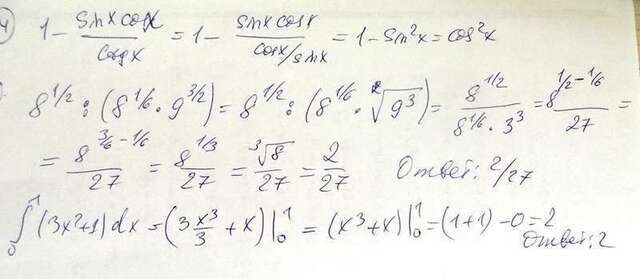 4) 1 - sinx cosx / ctgx = 1 - sinx cosx / cosx/sinx = 1 - sin²x = cos²x
8^1/2 : (8^1/6 · 9^3/2) = 8^1/2 : (8^1/6 · ²√9³) = 8^1/2 / 8^1/6 · 3³ = 8^1/2-1/6 / 27 =
= 8^3/6-1/6 / 27 = 8^1/3 / 27 = ³√8 / 27 = 2/27 Ответ: 2/27
∫₀¹ (3x²+1) dx = (3 x³/3 + x) |₀¹ = (x³+x) |₀¹ = (1+1) - 0 = 2
Ответ: 2